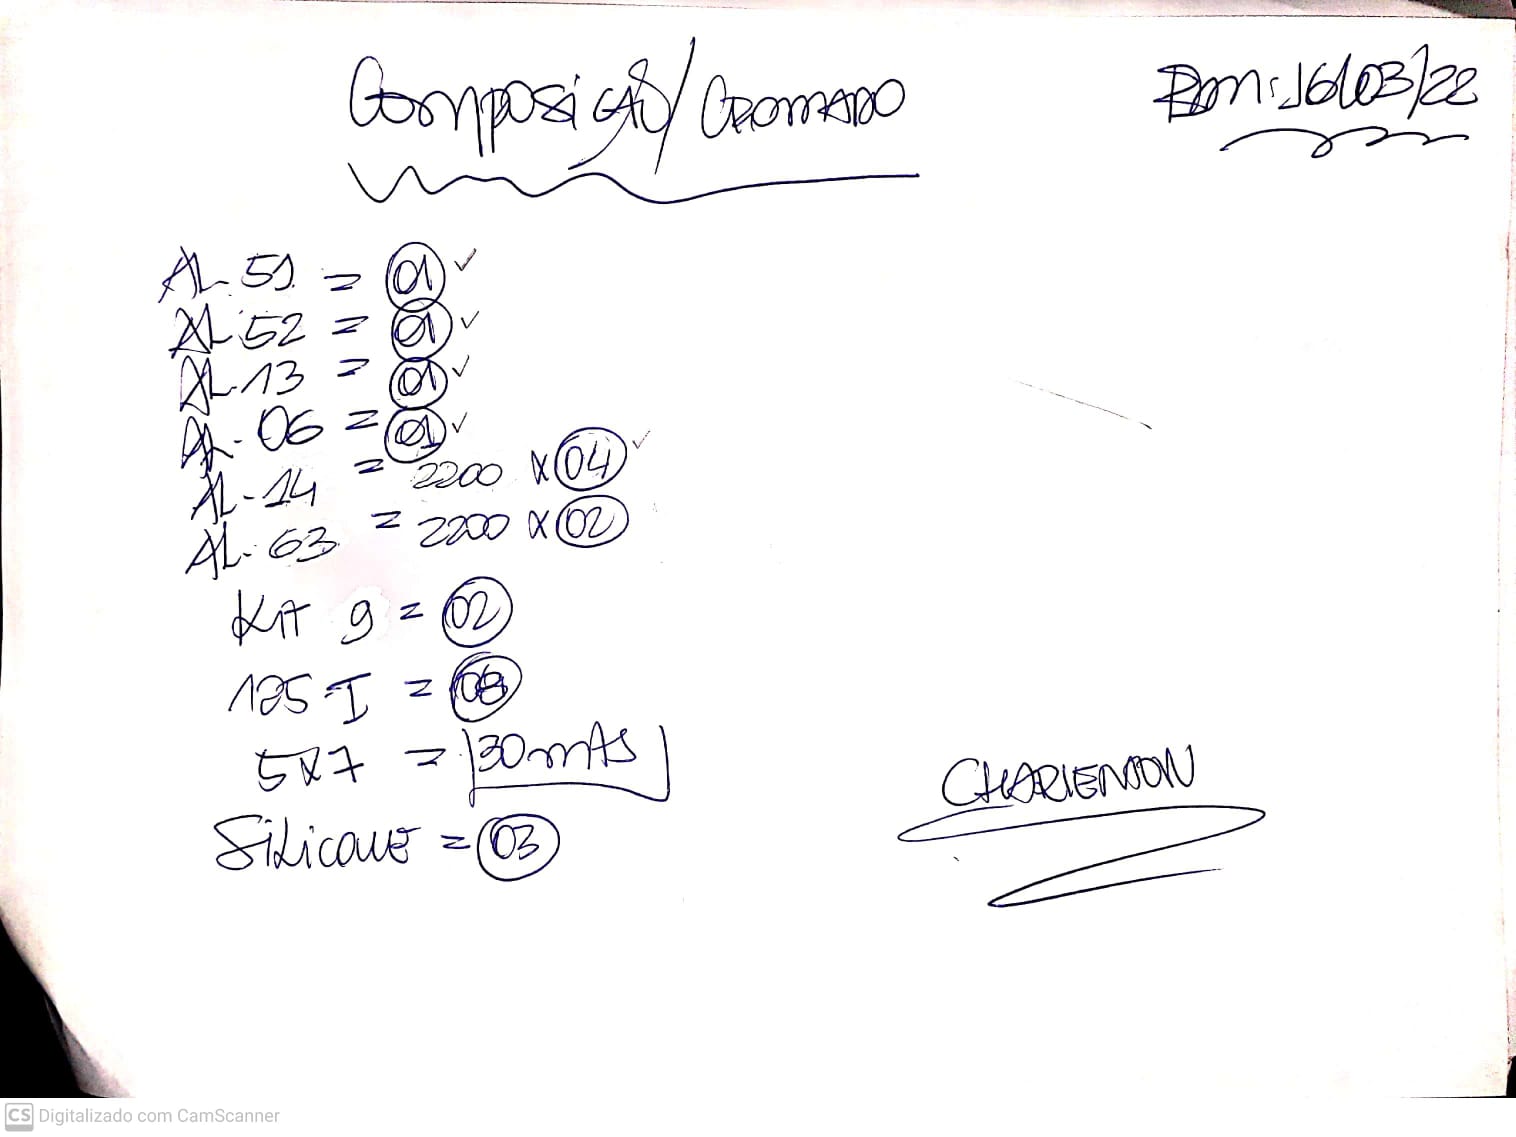 Composição/Cromado
Bm: 16/03/22
AL-51 = 01 ✓
AL-52 = 01 ✓
AL-13 = 01 ✓
AL-06 = 01 ✓
AL-14 = 2200 x 04 ✓
AL-63 = 2200 x 02
Kit 9 = 02
125-I = 08
5x7 = 30mts
Silicone = 03
CHARLENSON
CS Digitalizado com CamScanner